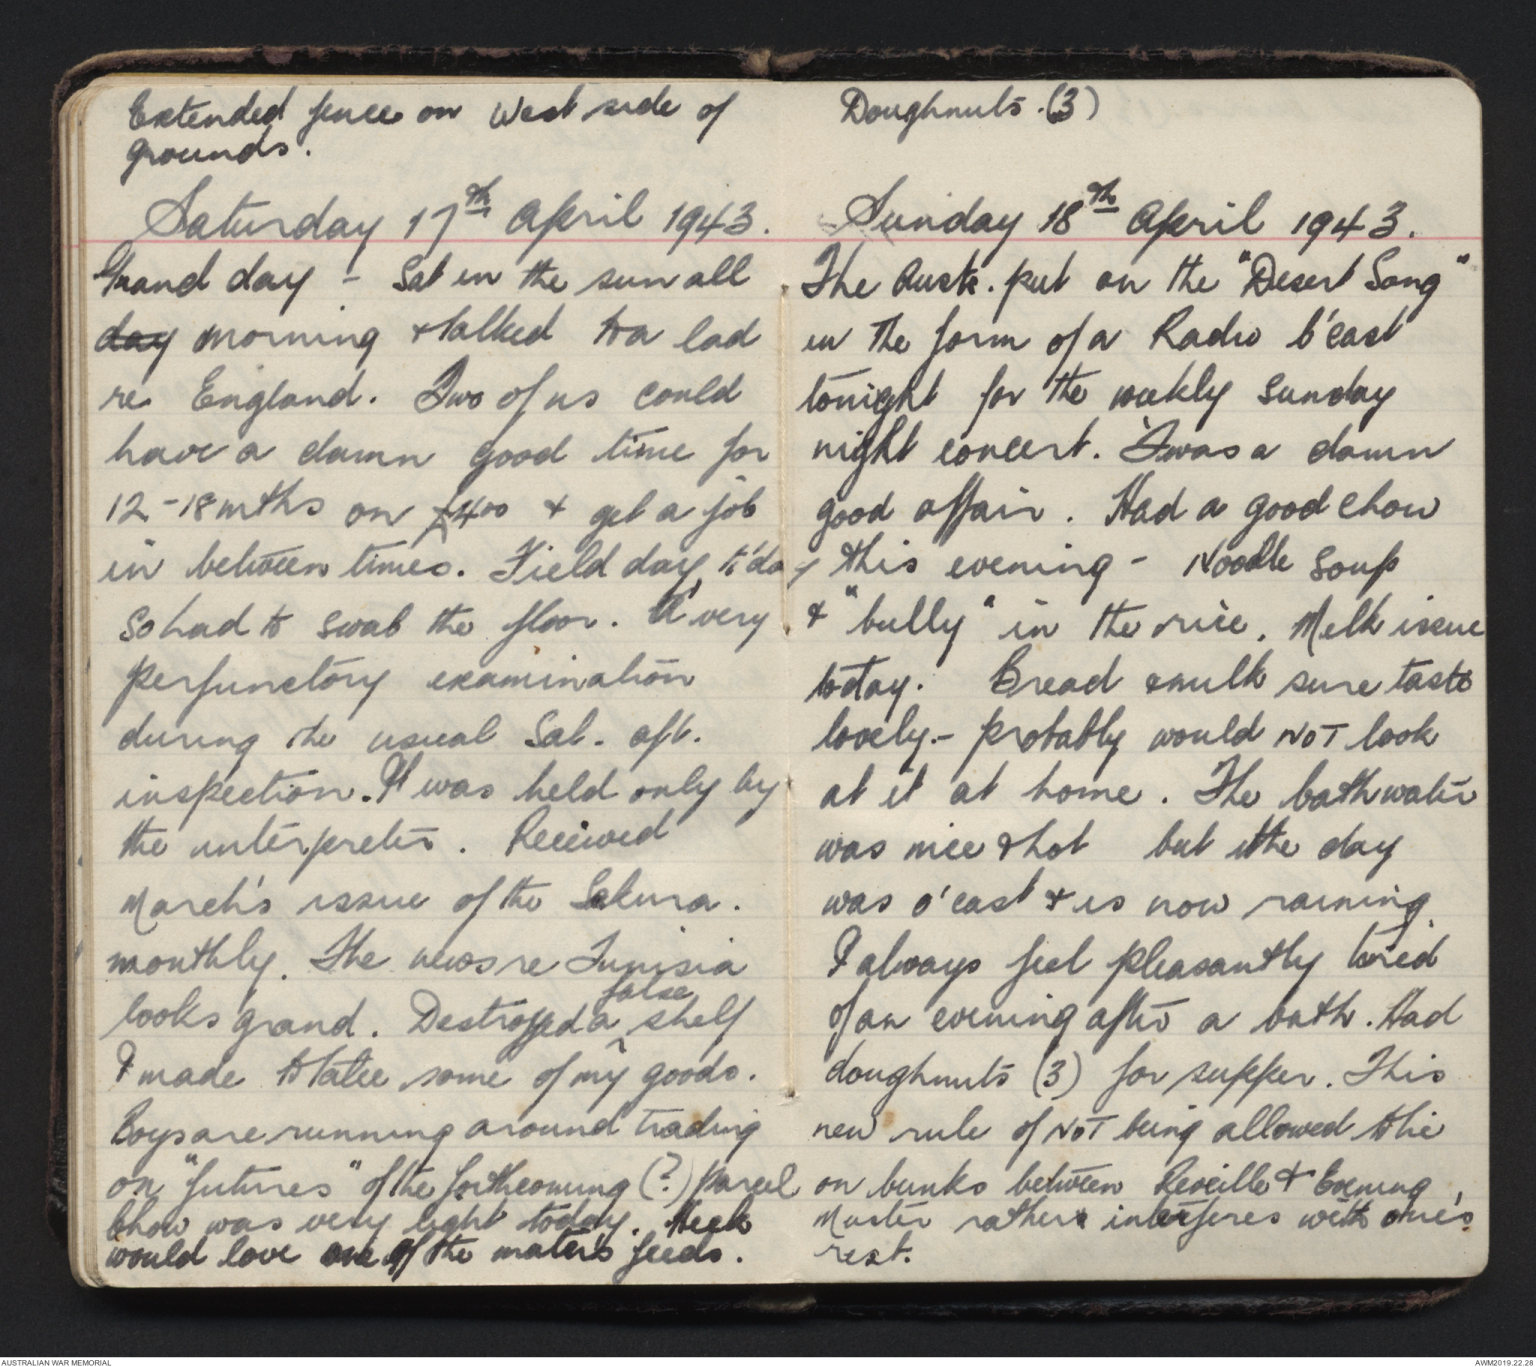 Extended fence on West side of
grounds.
Saturday 17th April 1943.
Grand day - Sat in the sun all
day morning & talked to a lad
re England. Two of us could
have a damn good time for
12-18 mths on £400 & get a job
in between times. Field day t'day
so had to swab the floor. A very
perfunctory examination
during the usual Sat. aft.
inspection. It was held only by
the interpreter. Received
March's issue of the Sakura.
monthly. The news re Tunisia
looks grand. Destroyed a false shelf
I made to take some of my goods.
Boys are running around trading
on "futures" of the forthcoming (?) parcel
Chow was very light today. Heck
would love one of the mater's feeds.
Doughnuts. (3)
Sunday 18th April 1943.
The Austs. put on the "Desert Song"
in the form of a Radio b'cast
tonight for the weekly Sunday
night concert. 'Twas a damn
good affair. Had a good chow
this evening - Noodle Soup
& "bully" in the rice. Milk issue
today. Bread & milk sure tasts
lovely - probably would NOT look
at it at home. The bath water
was nice & hot but the day
was o'cast & is now raining
I always feel pleasantly tired
of an evening after a bath. Had
doughnuts (3) for supper. This
new rule of NOT being allowed to lie
on bunks between Reveille & Evening
Muster rather interferes with one's
rest.
AUSTRALIAN WAR MEMORIAL
AWM2019.22.28